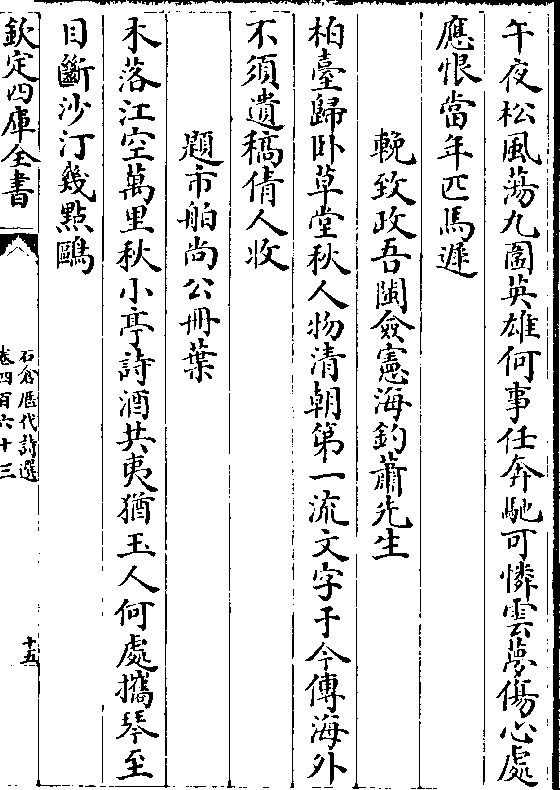 午夜松風蕩九圖英雄何事任奔馳可憐雲夢傷心處
應恨當年匹馬遲
輓致政吾閩僉憲海釣蕭先生
柏臺歸卧草堂秋人物清朝第一流文字于今傳海外
不須遺稿倩人收
題市舶尚公冊葉
木落江空萬里秋小亭詩酒共夷猶玉人何處攜琴至
目斷沙汀幾點鷗
欽定四庫全書
石倉歷代詩選
卷四百六十三
十五